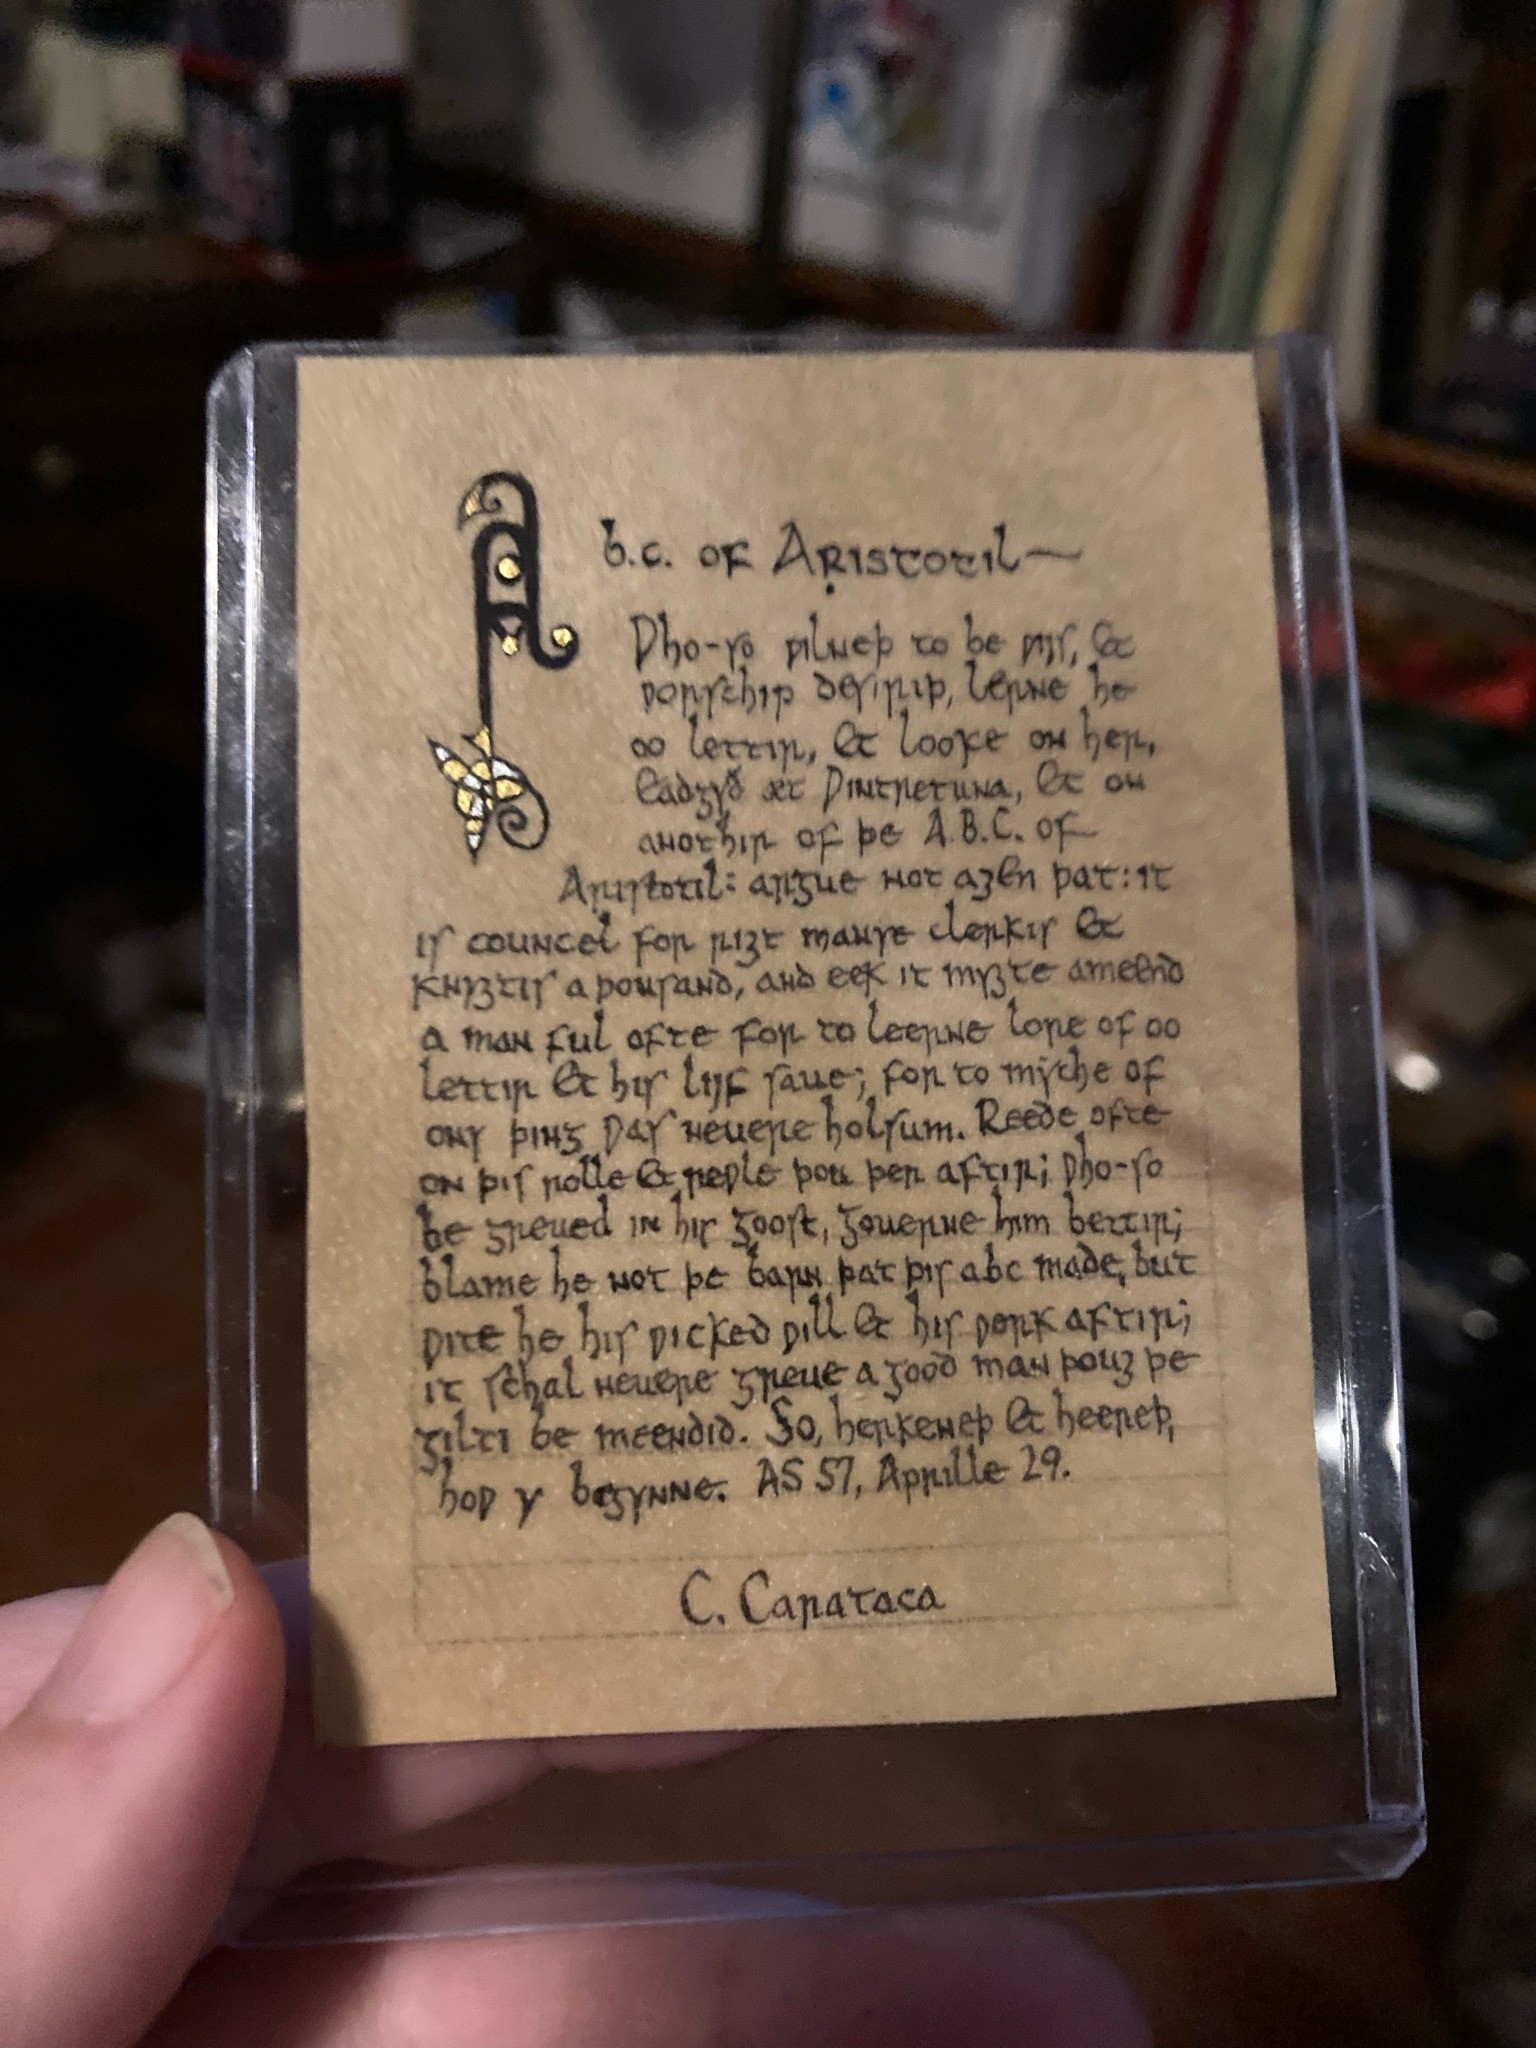 A b.c. of Aristotil
Ƿho-so ƿilneþ to be ƿijs, &
ƿorschip desiriþ, lerne he
oo lettir, & looke on her,
Eadgyð æt Ƿintretuna, & on
anothir of þe A.B.C. of
Aristotil: argue not aȝen þat: it
is councel for riȝt manye clerkis &
knyȝtis a þousand, and eek it myȝte ameend
a man ful ofte for to leerne lore of oo
lettir & his lijf saue; for to myche of
ony þing ƿas neuere holsum. Reede ofte
on þis rolle & reƿle þou þer aftir; Ƿho-so
be greued in his goost, gouerne him bettir;
blame he not þe barn þat þis abc made, but
ƿite he his ƿicked ƿill & his ƿerk aftir;
it schal neuere greue a good man þouȝ þe
gilti be meendid. So, herkeneþ & heereþ,
hoƿ y begynne. AS 57, Aprille 29.
C. Carataca